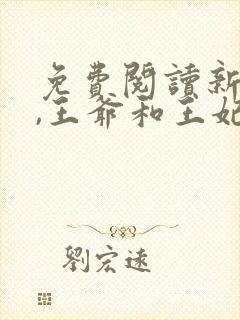 免費閱讀新
,王爺和王妃
劉宏遠